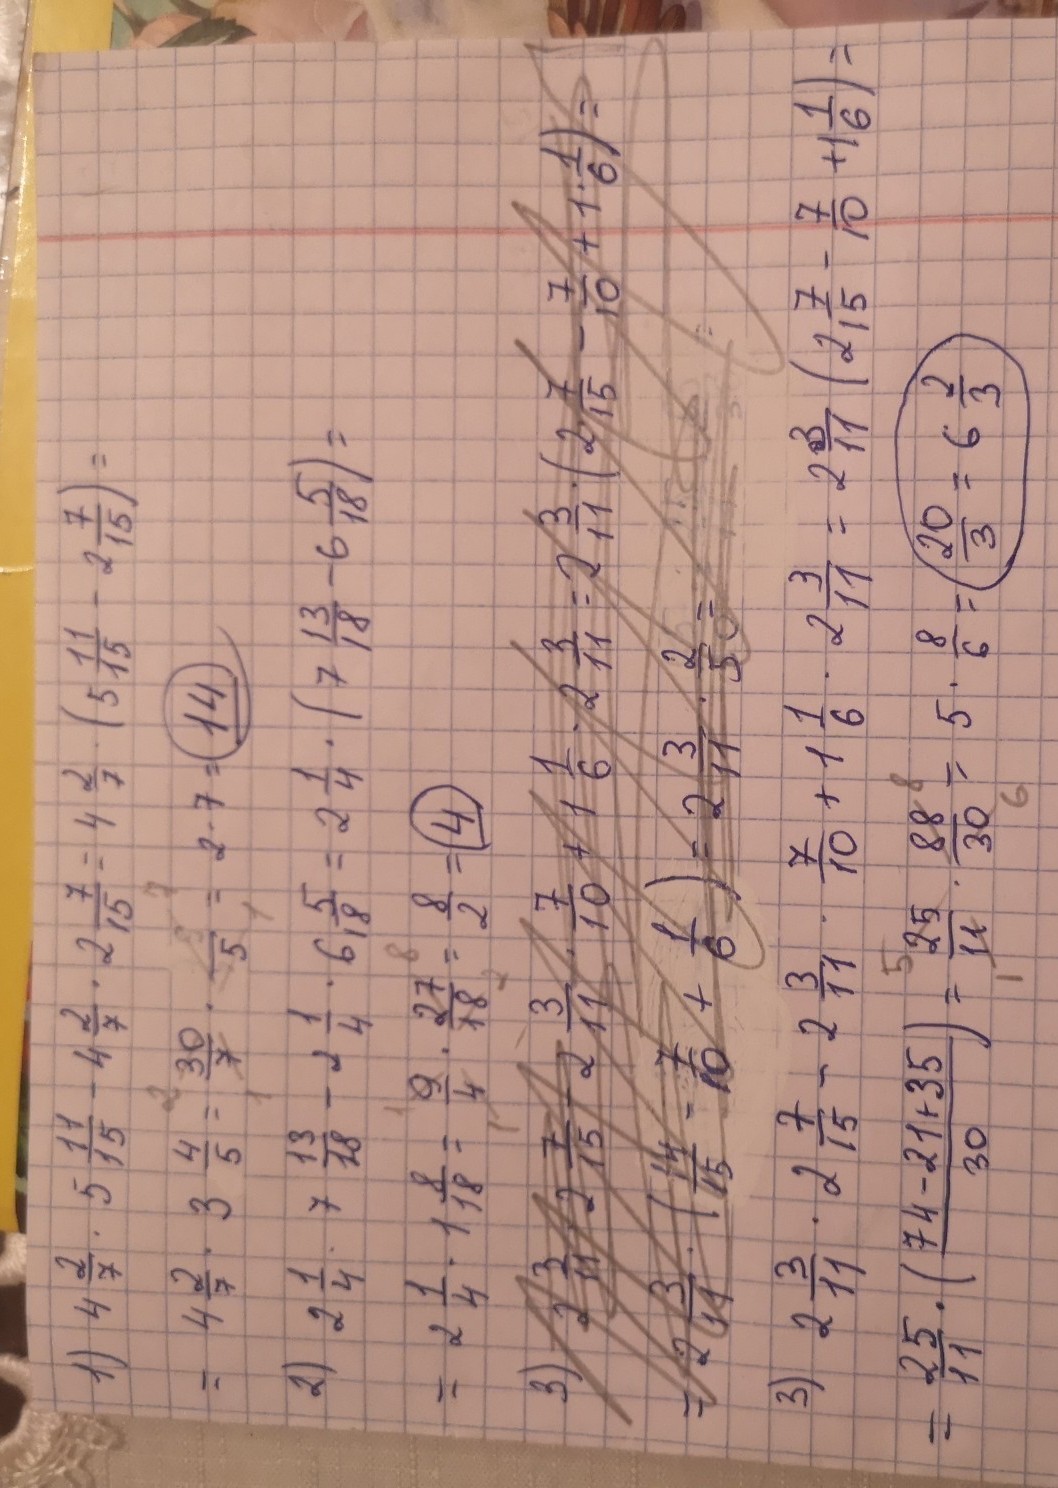 1) 4 2/7 · 5 11/15 - 4 2/7 · 2 7/15 = 4 2/7 · (5 11/15 - 2 7/15) =
= 4 2/7 · 3 4/5 = 30/7 · /5 = 2 · 7 = 14
2) 2 1/4 · 7 13/18 - 2 1/4 · 6 5/18 = 2 1/4 · (7 13/18 - 6 5/18) =
= 2 1/4 · 1 8/18 = 9/4 · 27/18 = 8/2 = 4
3) 2 3/11 · 2 7/15 - 2 3/11 · 7/10 + 1 1/6 · 2 3/11 = 2 3/11 · (2 7/15 - 7/10 + 1 · 1/6) =
= 2 3/11 · (14/15 - 7/10 + 1/6) = 2 3/11 · 2/5 =
3) 2 3/11 · 2 7/15 - 2 3/11 · 7/10 + 1 1/6 · 2 3/11 = 2 3/11 (2 7/15 - 7/10 + 1 1/6) =
= 25/11 · (74-21+35/30) = 25/11 · 88/30 = 5 · 8/6 = 20/3 = 6 2/3